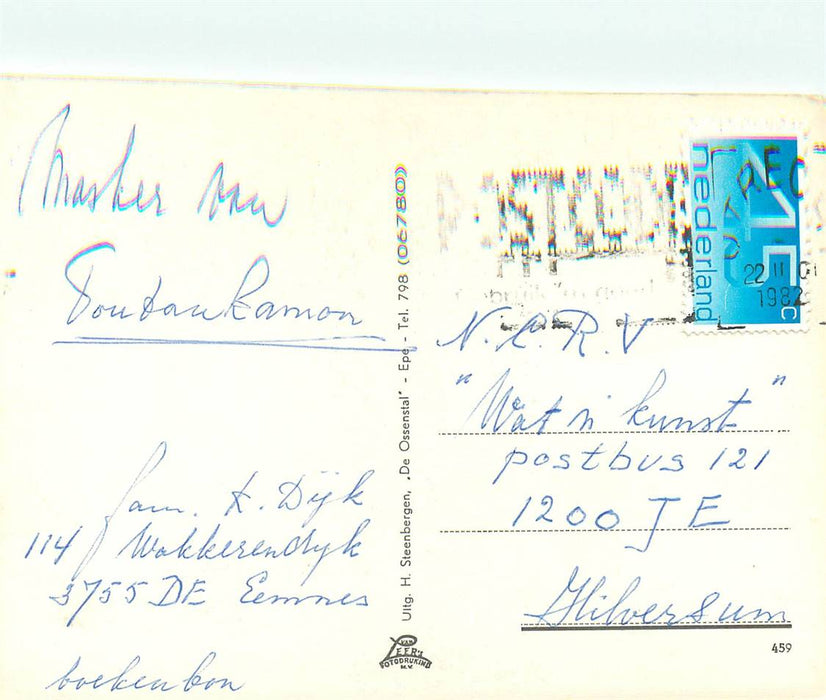 Masker van
Toutankamon
fam. K. Dijk
114 Wakkerendijk
3755 DE Eemnes
boekenbon
Uitg. H. Steenbergen, „De Ossenstal" - Epe - Tel. 798 (06780)
VAN
LEER's
FOTODRUKIND
N.V.
nederland
45
c
22 II
1982
N.C.R.V
"Wat 'n kunst"
postbus 121
1200 JE
Hilversum
459